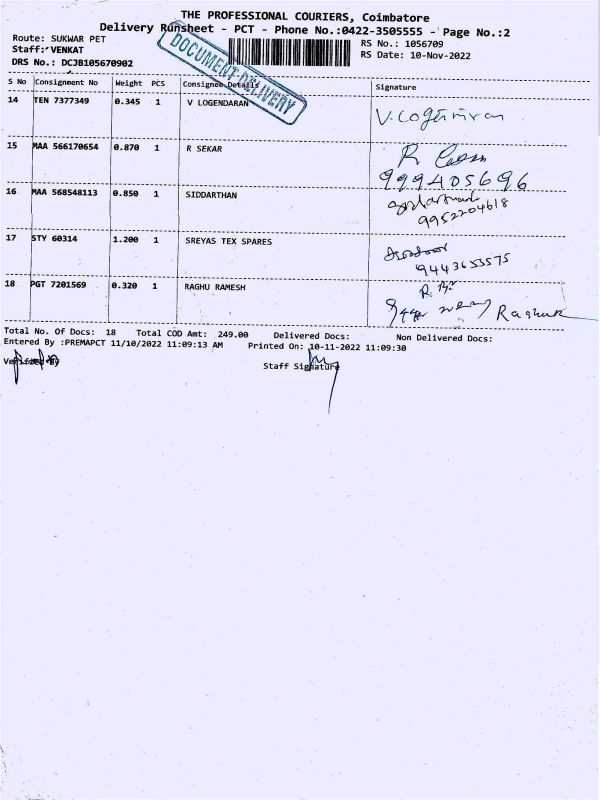 THE PROFESSIONAL COURIERS, Coimbatore
Delivery Runsheet - PCT - Phone No.:0422-3505555 - Page No.:2
Route: SUKWAR PET
RS No.: 1056709
Staff: VENKAT
RS Date: 10-Nov-2022
DRS No.: DCJB105670902
DOCUMENT DELIVERY
S No Consignment No Weight PCS Consignee Details Signature
14 TEN 7377349 0.345 1 V LOGENDARAN
15 MAA 566170654 0.870 1 R SEKAR
999405696
16 MAA 568548113 0.850 1 SIDDARTHAN
9952204618
17 STY 60314 1.200 1 SREYAS TEX SPARES
9443653575
18 PGT 7201569 0.320 1 RAGHU RAMESH
Total No. Of Docs: 18 Total COD Amt: 249.00 Delivered Docs: Non Delivered Docs:
Entered By :PREMAPCT 11/10/2022 11:09:13 AM Printed On: 10-11-2022 11:09:30
Verified By
Staff Signature